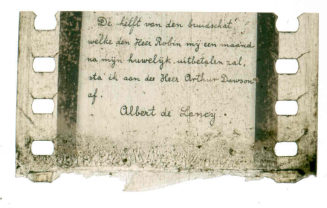 De helft van den bruidschat,
welke den Heer Robin mij een maand
na mijn huwelijk uitbetalen zal,
sta ik aan den Heer Arthur Dawson
af.
Albert de Lancy.